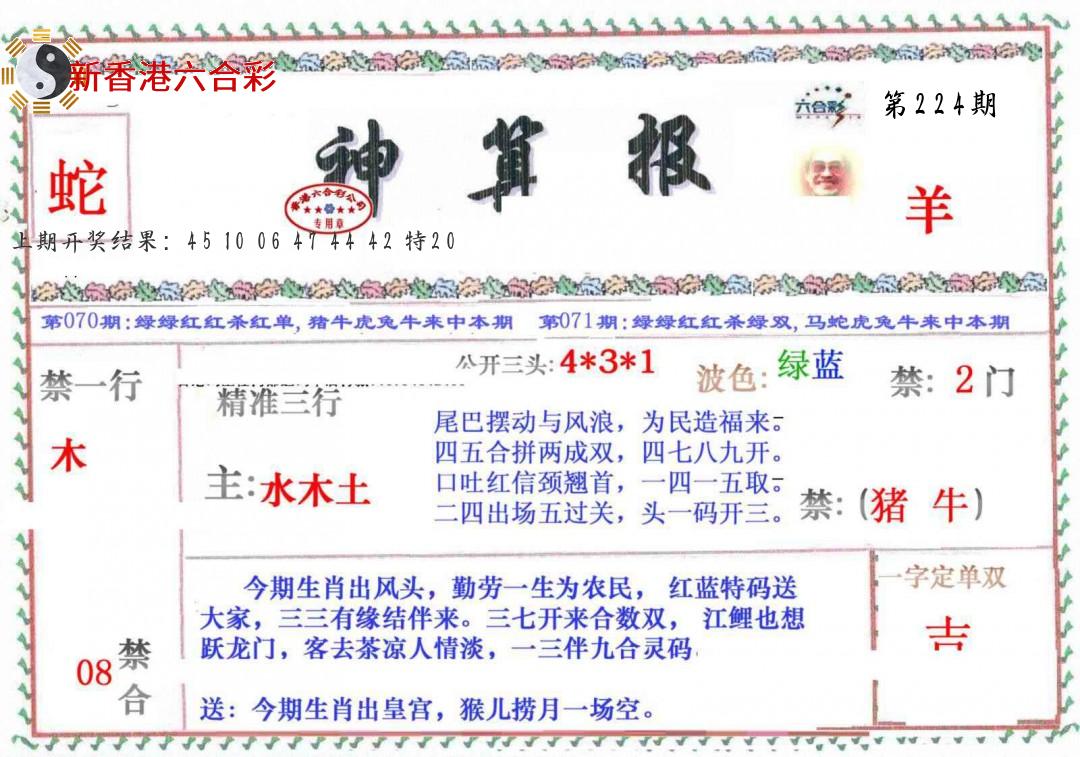 新香港六合彩
六合彩
第224期
神算报
蛇
羊
香港六合彩公司
专用章
上期开奖结果：45 10 06 47 44 42 特20
第070期:绿绿红红杀红单,猪牛虎兔牛来中本期 第071期:绿绿红红杀绿双,马蛇虎兔牛来中本期
公开三头:4*3*1
波色:绿蓝
禁:2门
禁一行
木
精准三行
主:水木土
尾巴摆动与风浪，为民造福来。
四五合拼两成双，四七八九开。
口吐红信颈翘首，一四一五取。
二四出场五过关，头一码开三。
禁:(猪 牛)
今期生肖出风头，勤劳一生为农民， 红蓝特码送
大家，三三有缘结伴来。三七开来合数双， 江鲤也想
跃龙门，客去茶凉人情淡，一三伴九合灵码.
送：今期生肖出皇宫，猴儿捞月一场空。
一字定单双
吉
08禁合